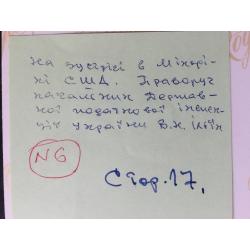 На зустрічі в Мінфі-
ні США. Праворуч
начальник Держав-
ної податкової інспек-
ції України В.М. Ільїн
N6
Стор. 17.